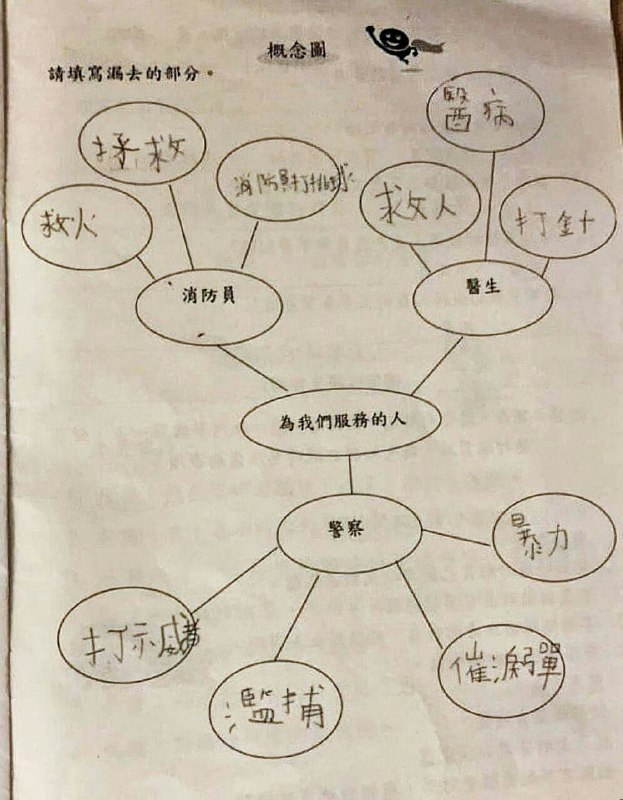 概念圖
請填寫漏去的部分。
醫病
拯救
消防員打排球
救火
救人
打針
消防員
醫生
為我們服務的人
警察
暴力
打示威者
催淚彈
濫捕